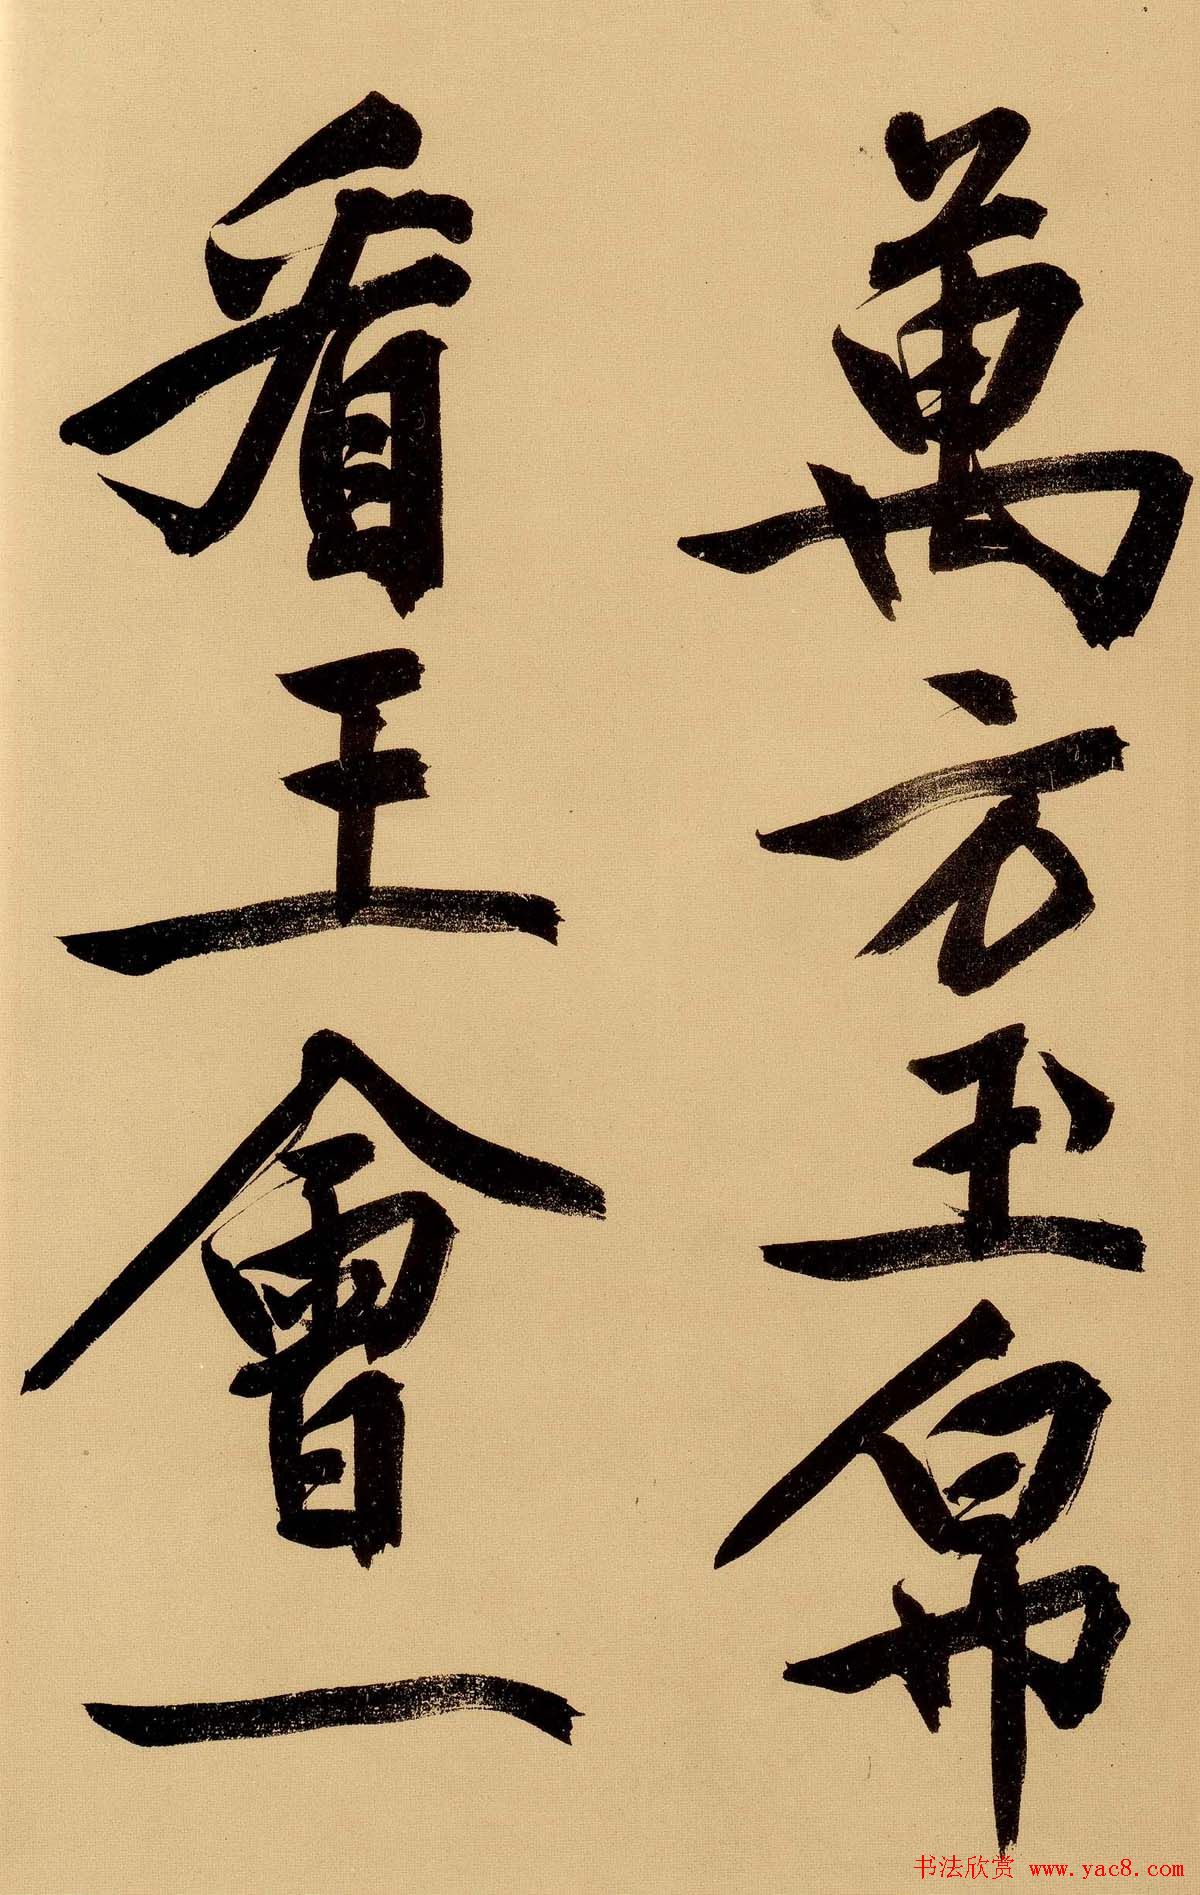 萬方玉帛
看王會一
书法欣赏 www.yac8.com